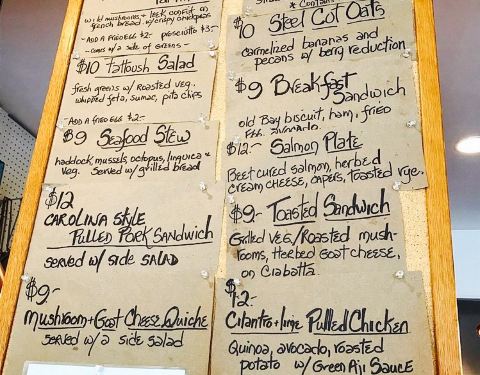 wild mushrooms + leek confit on
french bread w/ crispy chickpeas
- ADD A FRIED EGG $2- prosciutto $3-
- comes w/ a side of greens -
$10 Fattoush Salad
fresh greens w/ Roasted veg.
whipped feta, sumac, pita chips
ADD A FRIED EGG $2-
$9 Seafood Stew
haddock, mussels, octopus, linguica +
veg. Served w/ grilled bread
$12
CAROLINA STYLE
PULLED PORK SANDWICH
SERVED w/ side SALAD
$9-
Mushroom + Goat Cheese Quiche
served w/ a side salad
* Contains
$10 Steel Cut Oats
carmelized bananas and
pecans w/ berry reduction
$9 Breakfast
Sandwich
old Bay biscuit, ham, fried
Egg, avocado.
$12- Salmon Plate
Beet cured salmon, herbed
cream cheese, capers, toasted rye.
$9- Toasted Sandwich
Grilled Veg/Roasted mush-
rooms, Herbed Goat cheese,
on Ciabatta.
$12-
Cilantro + lime Pulled Chicken
Quinoa, avocado, roasted
potato w/ Green Aji Sauce